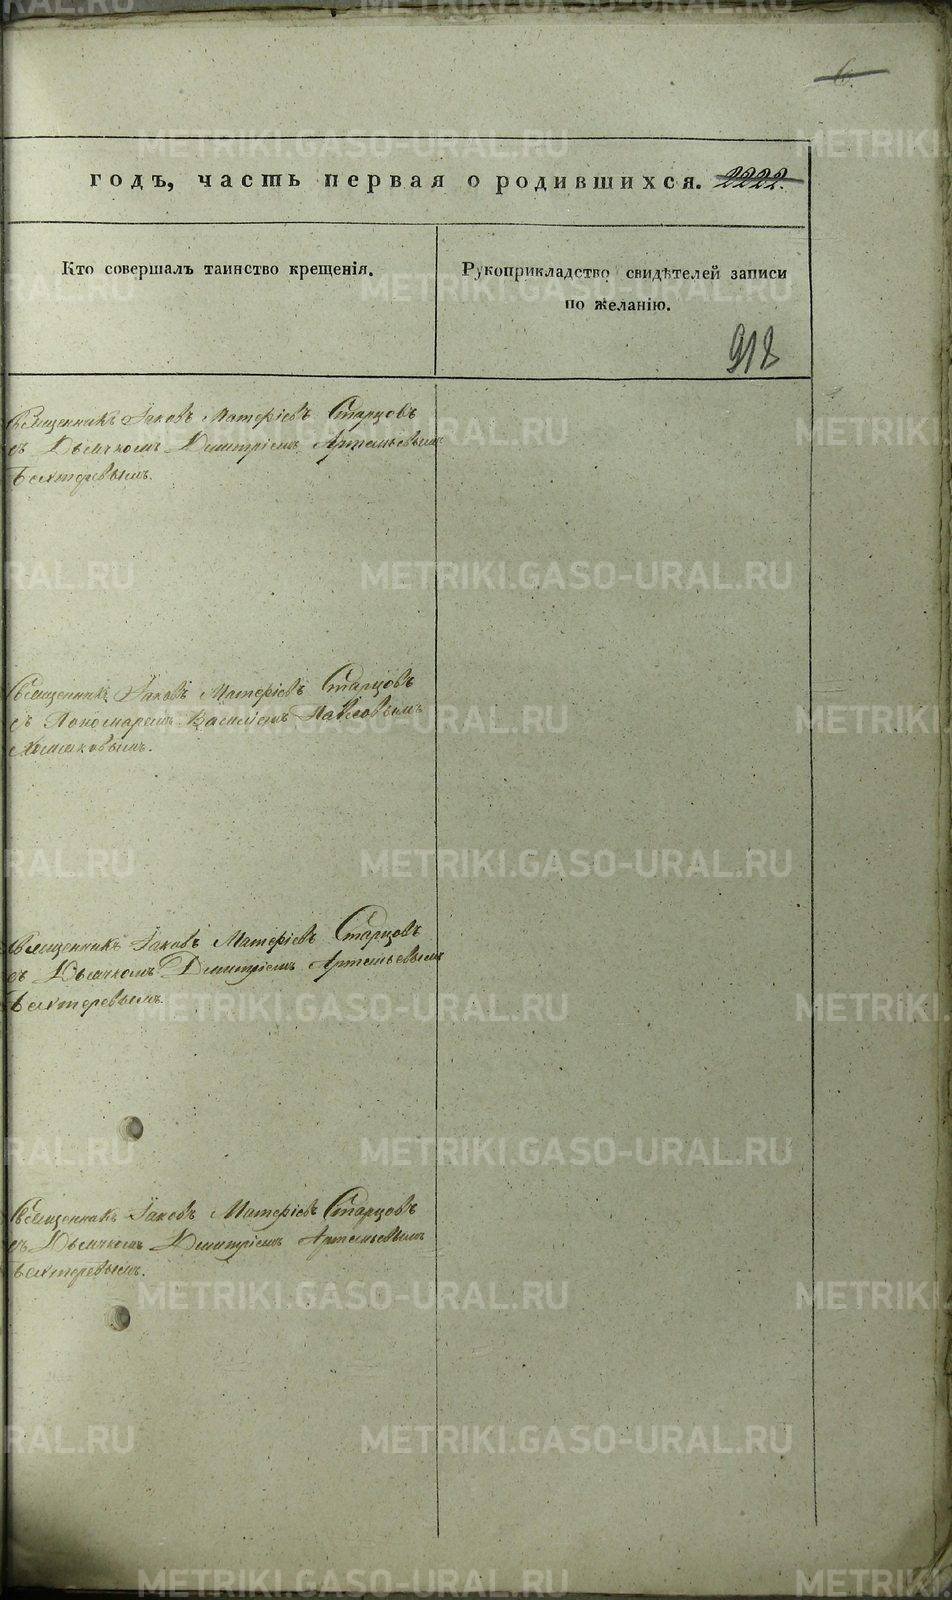 6.
годъ, часть первая о родившихся. 2222.
Кто совершалъ таинство крещенія.
Рукоприкладство свидѣтелей записи
по желанію.
918
Священникъ Іаковъ Матѳіевъ Старцовъ
съ Дьячкомъ Димитріемъ Артемьевымъ
Бехтеревымъ.
Священникъ Іаковъ Матѳіевъ Старцовъ
съ Пономаремъ Василіемъ Павловымъ
Священникъ Іаковъ Матѳіевъ Старцовъ
съ Дьячкомъ Димитріемъ Артемьевымъ
Бехтеревымъ.
Священникъ Іаковъ Матѳіевъ Старцовъ
съ Дьячкомъ Димитріемъ Артемьевымъ
Бехтеревымъ.
METRIKI.GASO-URAL.RU